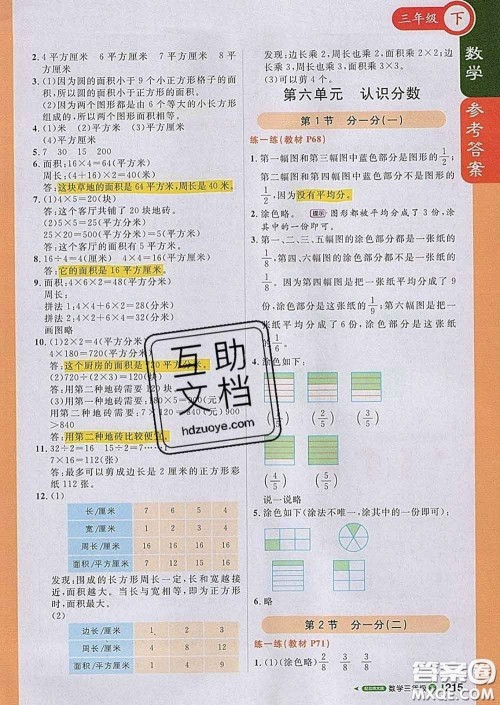 三年级 下
数学
参考答案
2. 4 平方厘米 6 平方厘米 7 平方厘米 8 平方厘米
3. (1)因为圆的面积小于 9 个小正方形格子的面积,所以圆的面积小于正方形的面积。
(2)因为正方形是由 6 个等大的小长方形组成,所以长方形的面积小于正方形的面积。
4. (1)12 (2)15
5. 7 30 15 200
6. 面积:16×4=64(平方米)
周长:(16+4)×2=40(米)
答:这块草地的面积是 64 平方米,周长是 40 米。
7. (1)4×5=20(块)
答:这个客厅共铺了 20 块地砖。
25×20=500(平方分米)
(2)500×5=2500(元)
8. 16÷4=4(厘米) 4×4=16(平方厘米)
答:它的面积是 16 平方厘米。
9. 面积:4×6×2=48(平方厘米)
周长:
拼法一:4×4+6×2=28(厘米)
拼法二:4×2+6×4=32(厘米)
画图略
10. (1)2×4
4×180=720(平方分米)
答:这个厨房的面积是 720 平方分米。
(2)720÷
答:用第二种地砖需要
用第一种地砖:5×180=900(元)
用第二种地砖:7×120=840(元) 900
>840
答:用第二种地砖比较便宜。
11. 32÷2=16 15÷2=7……
7×16=112(张)
答:最多可以剪成边长是 2 厘米的正方形彩纸 112 张。
12. (1)
长/厘米 7 6 5 4
宽/厘米 1 2 3 4
周长/厘米 16 16 16 16
面积/平方厘米 7 12 15 16
发现:围成的长方形周长一定,长和宽越接近,面积越大。当长和宽相等时,即成为正方形时面积最大。
(2)
边长/厘米 1 2 3 4
周长/厘米 4 8 12 16
面积/平方厘米 1 4 9 16
发现:边长乘 2,周长也乘 2,面积乘 4;边长乘 3,周长也乘 3,面积乘 9。
(3)可以剪 4 个。
第六单元 认识分数
第 1 节 分一分(一)
练一练(教材 P68)
1. 第一幅图和第三幅图中蓝色部分是图形的 1/2,第二幅图和第四幅图中蓝色部分不是图形的 1/2,因为没有平均分。
2. 涂色略。 提示 图形都被平均分成了 3 份,涂其中的一份即可。
3. 第一、二、三、五幅图的涂色部分都是一张纸的 1/8。因为第四幅图是把一张纸平均分成了 9 份,所以涂色部分是这张纸的 1/9;第六幅图是把一张纸平均分成了 6 份,涂色部分是这张纸的 1/6。
4. 涂色如下:
(1/5) (2/5) (3/5) (4/5)
说一说略
5. 涂色如下(涂法不唯一,涂其中的一份即可):
6. 略
第 2 节 分一分(二)
练一练(教材 P71)
1. (1)(2)涂色略
互助文档
hdzuoye.com
数学三年级 下 215
答案圈